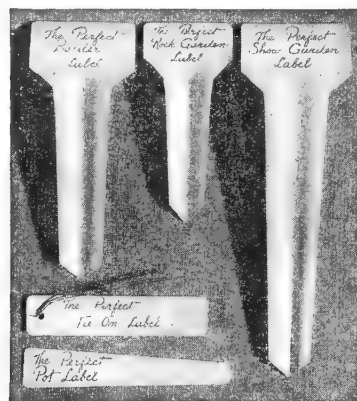 The Perfect
Border
Label
The Perfect
Rock Garden
Label
The Perfect
Show Garden
Label
The Perfect
Tie On Label.
The Perfect
Pot Label